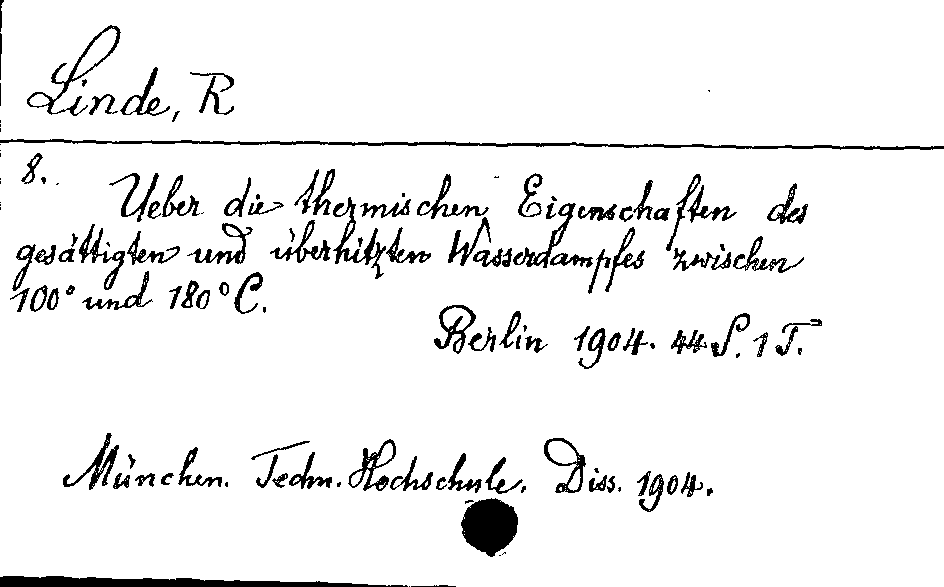 Linde, R
8.
Ueber die thermischen Eigenschaften des
gesättigten und überhitzten Wasserdampfes zwischen
100° und 180° C.
Berlin 1904. 44 S. 1 T.
München. Techn. Hochschule. Diss. 1904.